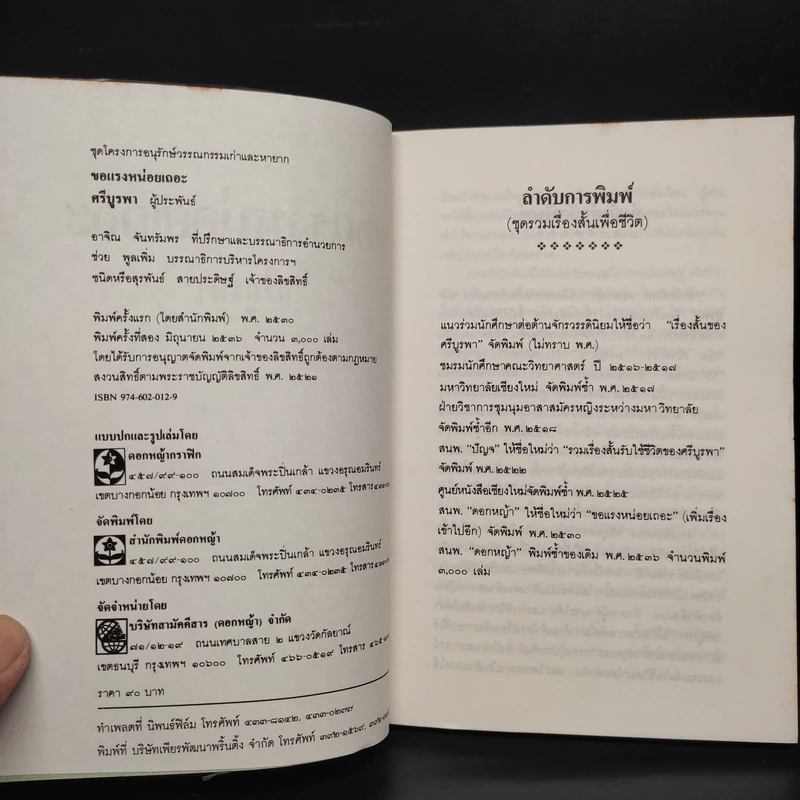 ชุดโครงการอนุรักษ์วรรณกรรมเก่าและหายาก
ขอแรงหน่อยเถอะ
ศรีบูรพา ผู้ประพันธ์
อาจิณ จันทรัมพร ที่ปรึกษาและบรรณาธิการอำนวยการ
ช่วย พูลเพิ่ม บรรณาธิการบริหารโครงการฯ
ชนิดหรือสุรพันธ์ สายประดิษฐ์ เจ้าของลิขสิทธิ์
พิมพ์ครั้งแรก (โดยสำนักพิมพ์) พ.ศ. ๒๕๓๐
พิมพ์ครั้งที่สอง มิถุนายน ๒๕๓๖ จำนวน ๓,๐๐๐ เล่ม
โดยได้รับการอนุญาตจัดพิมพ์จากเจ้าของลิขสิทธิ์ถูกต้องตามกฎหมาย
สงวนสิทธิ์ตามพระราชบัญญัติลิขสิทธิ์ พ.ศ. ๒๕๒๑
ISBN 974-602-012-9
แบบปกและรูปเล่มโดย
ดอกหญ้ากราฟิก
๔๕๗/๙๙-๑๐๐ ถนนสมเด็จพระปิ่นเกล้า แขวงอรุณอมรินทร์
เขตบางกอกน้อย กรุงเทพฯ ๑๐๗๐๐ โทรศัพท์ ๔๓๔-๐๒๓๕ โทรสาร
จัดพิมพ์โดย
สำนักพิมพ์ดอกหญ้า
๔๕๗/๙๙-๑๐๐ ถนนสมเด็จพระปิ่นเกล้า แขวงอรุณอมรินทร์
เขตบางกอกน้อย กรุงเทพฯ ๑๐๗๐๐ โทรศัพท์ ๔๓๔-๐๒๓๕ โทรสาร
จัดจำหน่ายโดย
บริษัทสามัคคีสาร (ดอกหญ้า) จำกัด
๗๑/๑๒-๑๙ ถนนเทศบาลสาย ๒ แขวงวัดกัลยาณ์
เขตธนบุรี กรุงเทพฯ ๑๐๖๐๐ โทรศัพท์ ๔๖๖-๐๕๑๙ โทรสาร
ราคา ๙๐ บาท
ทำเพลตที่ นิพนธ์ฟิล์ม โทรศัพท์ ๔๓๓-๘๑๔๒, ๔๓๓-๐๒๗๗
พิมพ์ที่ บริษัทเพียรพัฒนาพริ้นติ้ง จำกัด โทรศัพท์ ๓๙๒-๑๕๖๙,
ลำดับการพิมพ์
(ชุดรวมเรื่องสั้นเพื่อชีวิต)
แนวร่วมนักศึกษาต่อต้านจักรวรรดินิยมให้ชื่อว่า "เรื่องสั้นของ
ศรีบูรพา" จัดพิมพ์ (ไม่ทราบ พ.ศ.)
ชมรมนักศึกษาคณะวิทยาศาสตร์ ปี ๒๕๑๖-๒๕๑๗
มหาวิทยาลัยเชียงใหม่ จัดพิมพ์ซ้ำ พ.ศ.๒๕๑๗
ฝ่ายวิชาการชุมนุมอาสาสมัครหญิงระหว่างมหาวิทยาลัย
จัดพิมพ์ซ้ำอีก พ.ศ.๒๕๑๘
สนพ. "ปัญจ" ให้ชื่อใหม่ว่า "รวมเรื่องสั้นรับใช้ชีวิตของศรีบูรพา"
จัดพิมพ์ พ.ศ.๒๕๒๒
ศูนย์หนังสือเชียงใหม่จัดพิมพ์ซ้ำ พ.ศ.๒๕๒๕
สนพ. "ดอกหญ้า" ให้ชื่อใหม่ว่า "ขอแรงหน่อยเถอะ" (เพิ่มเรื่อง
เข้าไปอีก) จัดพิมพ์ พ.ศ. ๒๕๓๐
สนพ. "ดอกหญ้า" พิมพ์ซ้ำของเดิม พ.ศ.๒๕๓๖ จำนวนพิมพ์
๓,๐๐๐ เล่ม